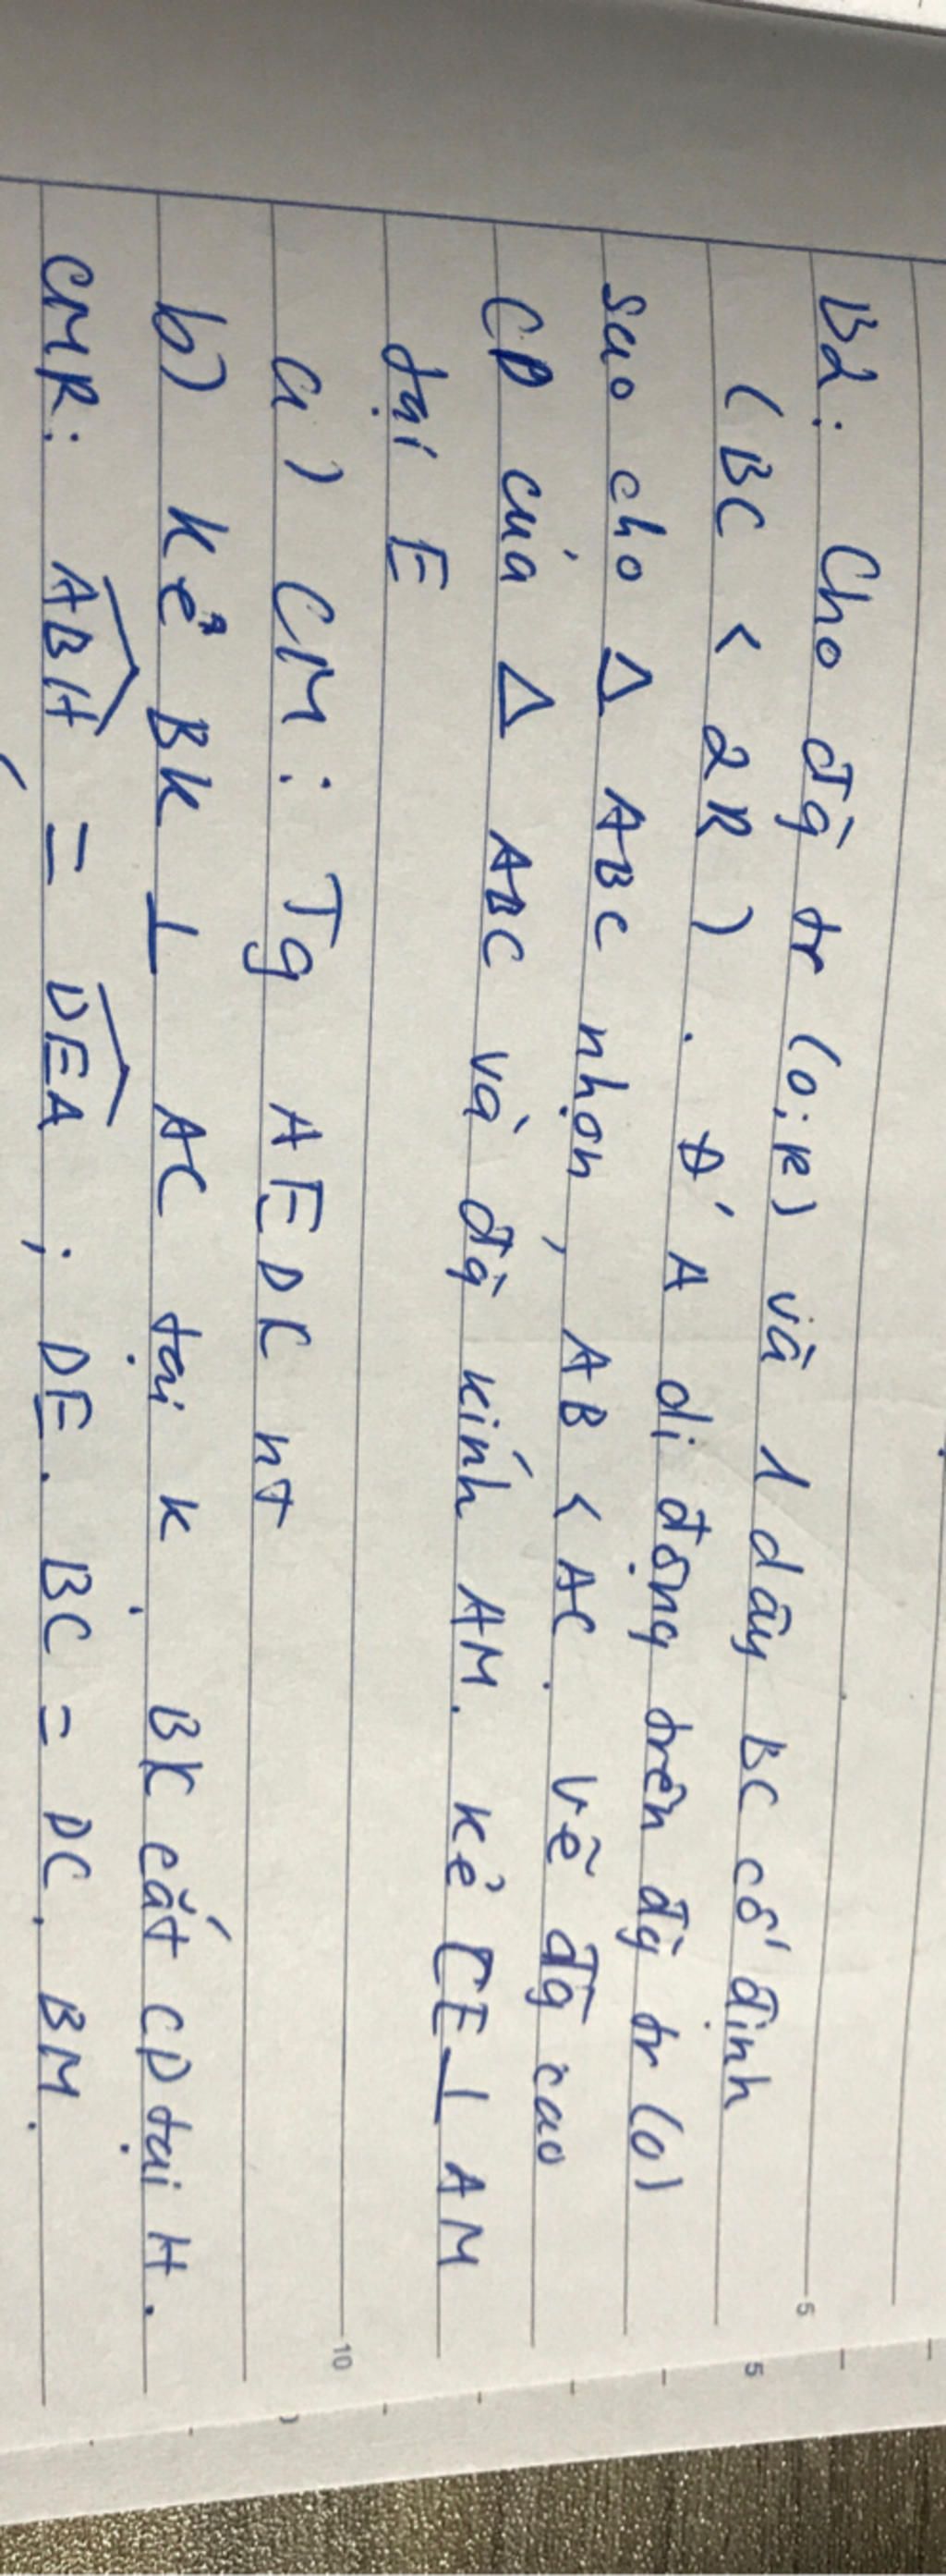 B2: Cho đg tr (O;R) và 1 dây BC cố định
(BC < 2R). Đ' A di động trên đg tr (O)
sao cho Δ ABC nhọn, AB < AC. Vẽ đg cao
CD của Δ ABC và đg kính AM. Kẻ CE ⊥ AM
tại E
a) CM: Tg AEDC nt
b) Kẻ BK ⊥ AC tại K. BK cắt CD tại H.
CMR: ABH = DEA; DE. BC = DC. BM.
5
5
10